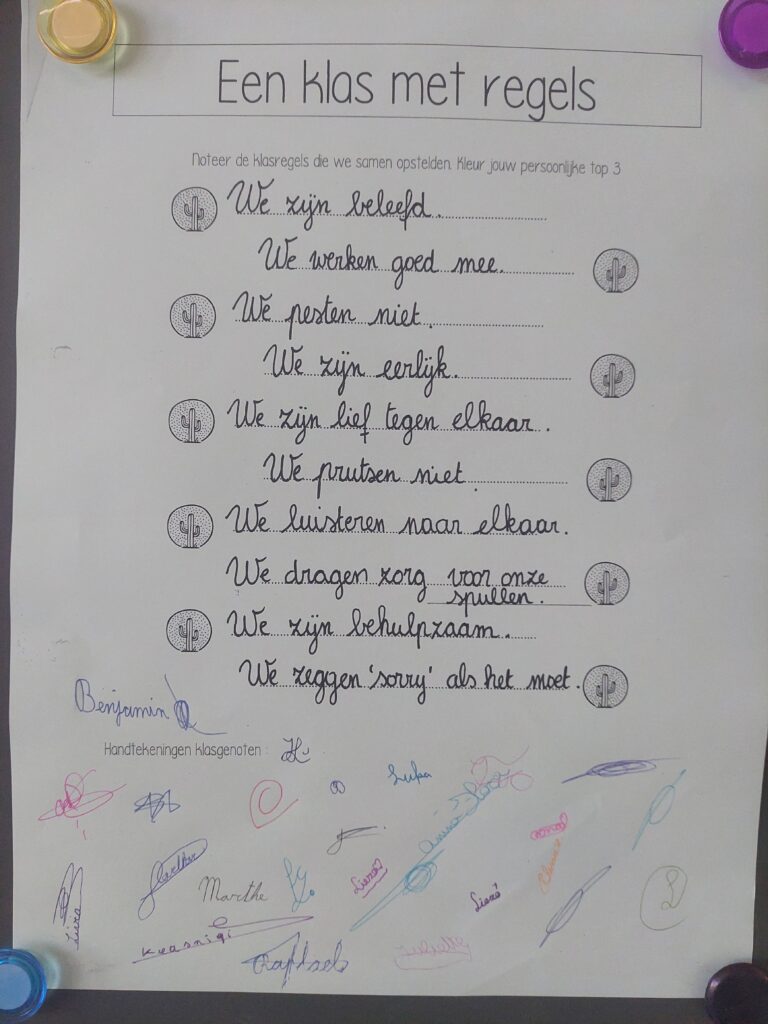 Een klas met regels
Noteer de klasregels die we samen opstelden. Kleur jouw persoonlijke top 3
We zijn beleefd.
We werken goed mee.
We pesten niet.
We zijn eerlijk.
We zijn lief tegen elkaar.
We prutsen niet.
We luisteren naar elkaar.
We dragen zorg voor onze
spullen.
We zijn behulpzaam.
We zeggen 'sorry' als het moet.
Benjamin
Handtekeningen klasgenoten :
Luka
Marthe